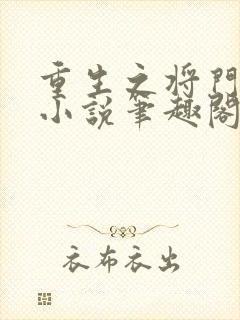 重生之将門
小説筆趣閣
衣布衣出